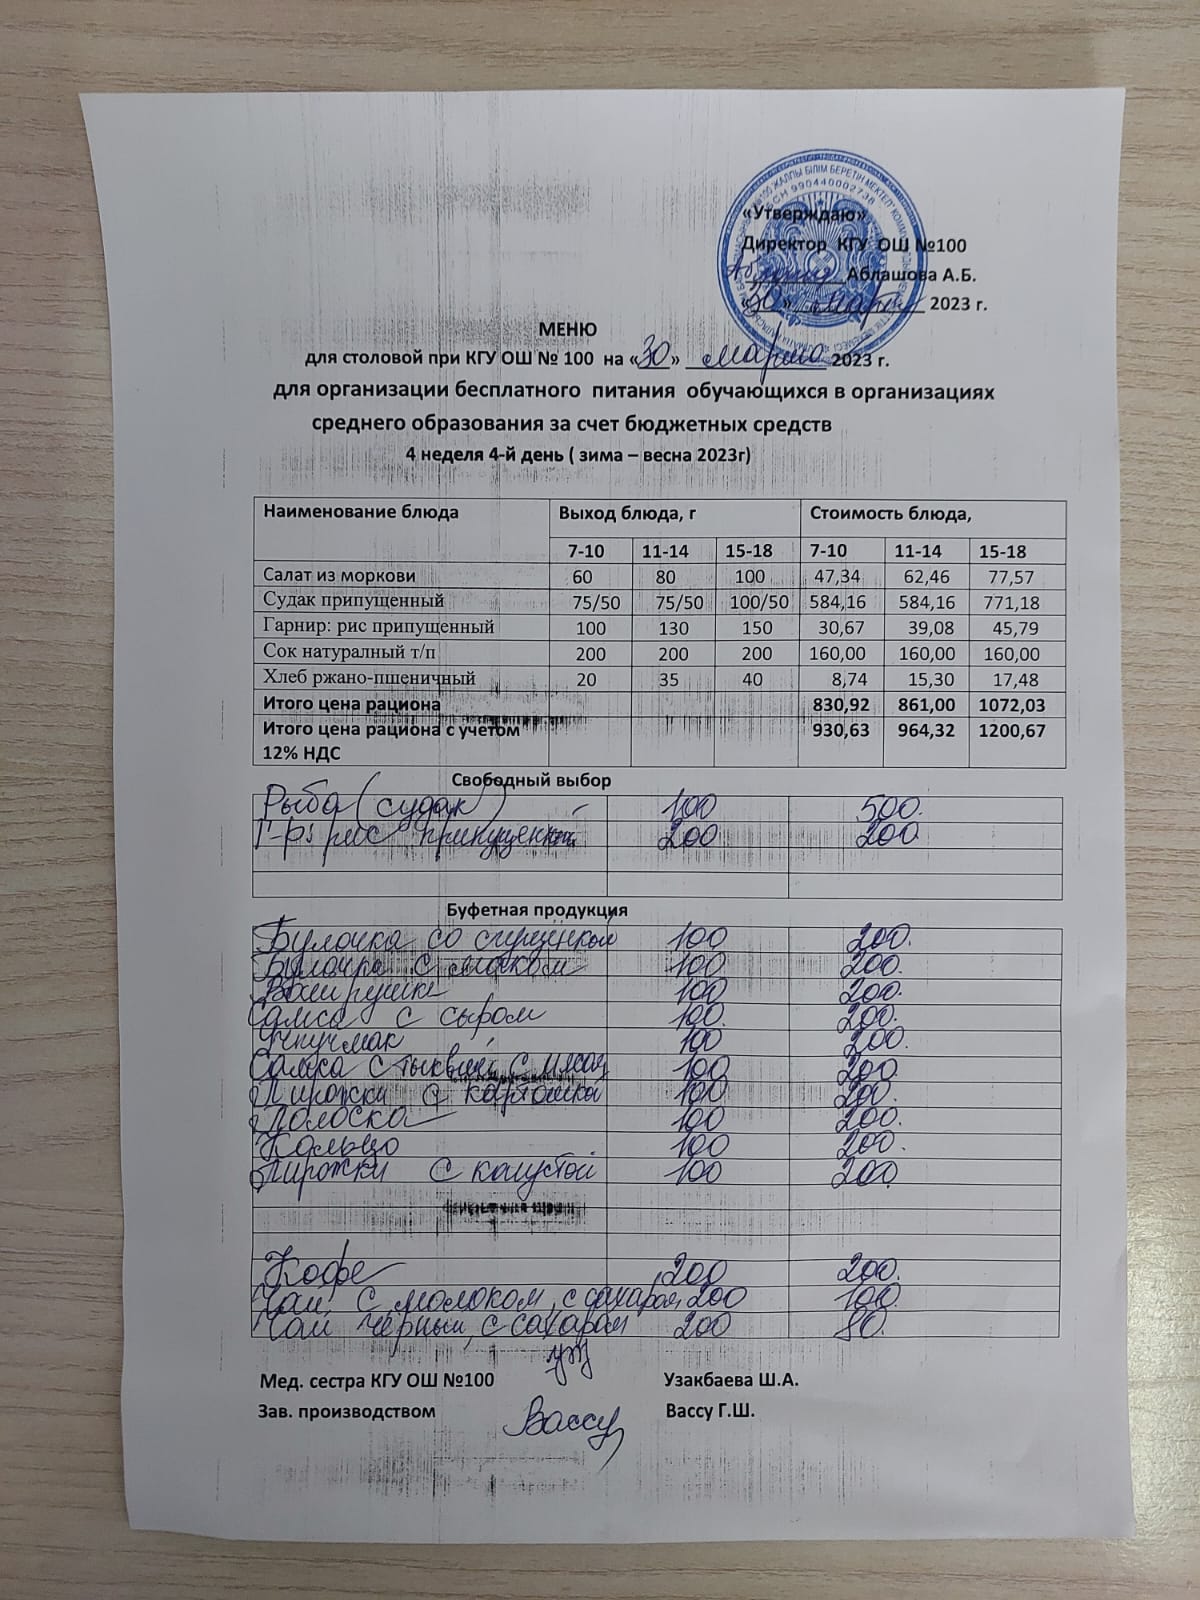 «Утверждаю»
Директор КГУ ОШ №100
Аблашова А.Б.
«30» марта 2023 г.
МЕНЮ
для столовой при КГУ ОШ № 100 на «30» марта 2023 г.
для организации бесплатного питания обучающихся в организациях
среднего образования за счет бюджетных средств
4 неделя 4-й день ( зима – весна 2023г)
Наименование блюда Выход блюда, г Стоимость блюда,
7-10 11-14 15-18 7-10 11-14 15-18
Салат из моркови 60 80 100 47,34 62,46 77,57
Судак припущенный 75/50 75/50 100/50 584,16 584,16 771,18
Гарнир: рис припущенный 100 130 150 30,67 39,08 45,79
Сок натуралный т/п 200 200 200 160,00 160,00 160,00
Хлеб ржано-пшеничный 20 35 40 8,74 15,30 17,48
Итого цена рациона 830,92 861,00 1072,03
Итого цена рациона с учетом 930,63 964,32 1200,67
12% НДС
Свободный выбор
Рыба (судак) 100 500.
Г-р: рис припущенный 200 200
Буфетная продукция
Булочка со сгущенкой 100 200.
Булочка с маком 100 200.
Ватрушки 100 200.
Самса с сыром 100. 200.
Учпучмак 100 200.
Самса с тыквой, с мясом 100 200.
Пирожки с картошкой 100 200.
Полоска 100 200.
Кольцо 100 200.
Пирожки с капустой 100 200.
Кофе 200 200.
Чай с молоком, с сахаром 200 100.
Чай черный, с сахаром 200 80.
Мед. сестра КГУ ОШ №100 Узакбаева Ш.А.
Зав. производством Вассу Вассу Г.Ш.